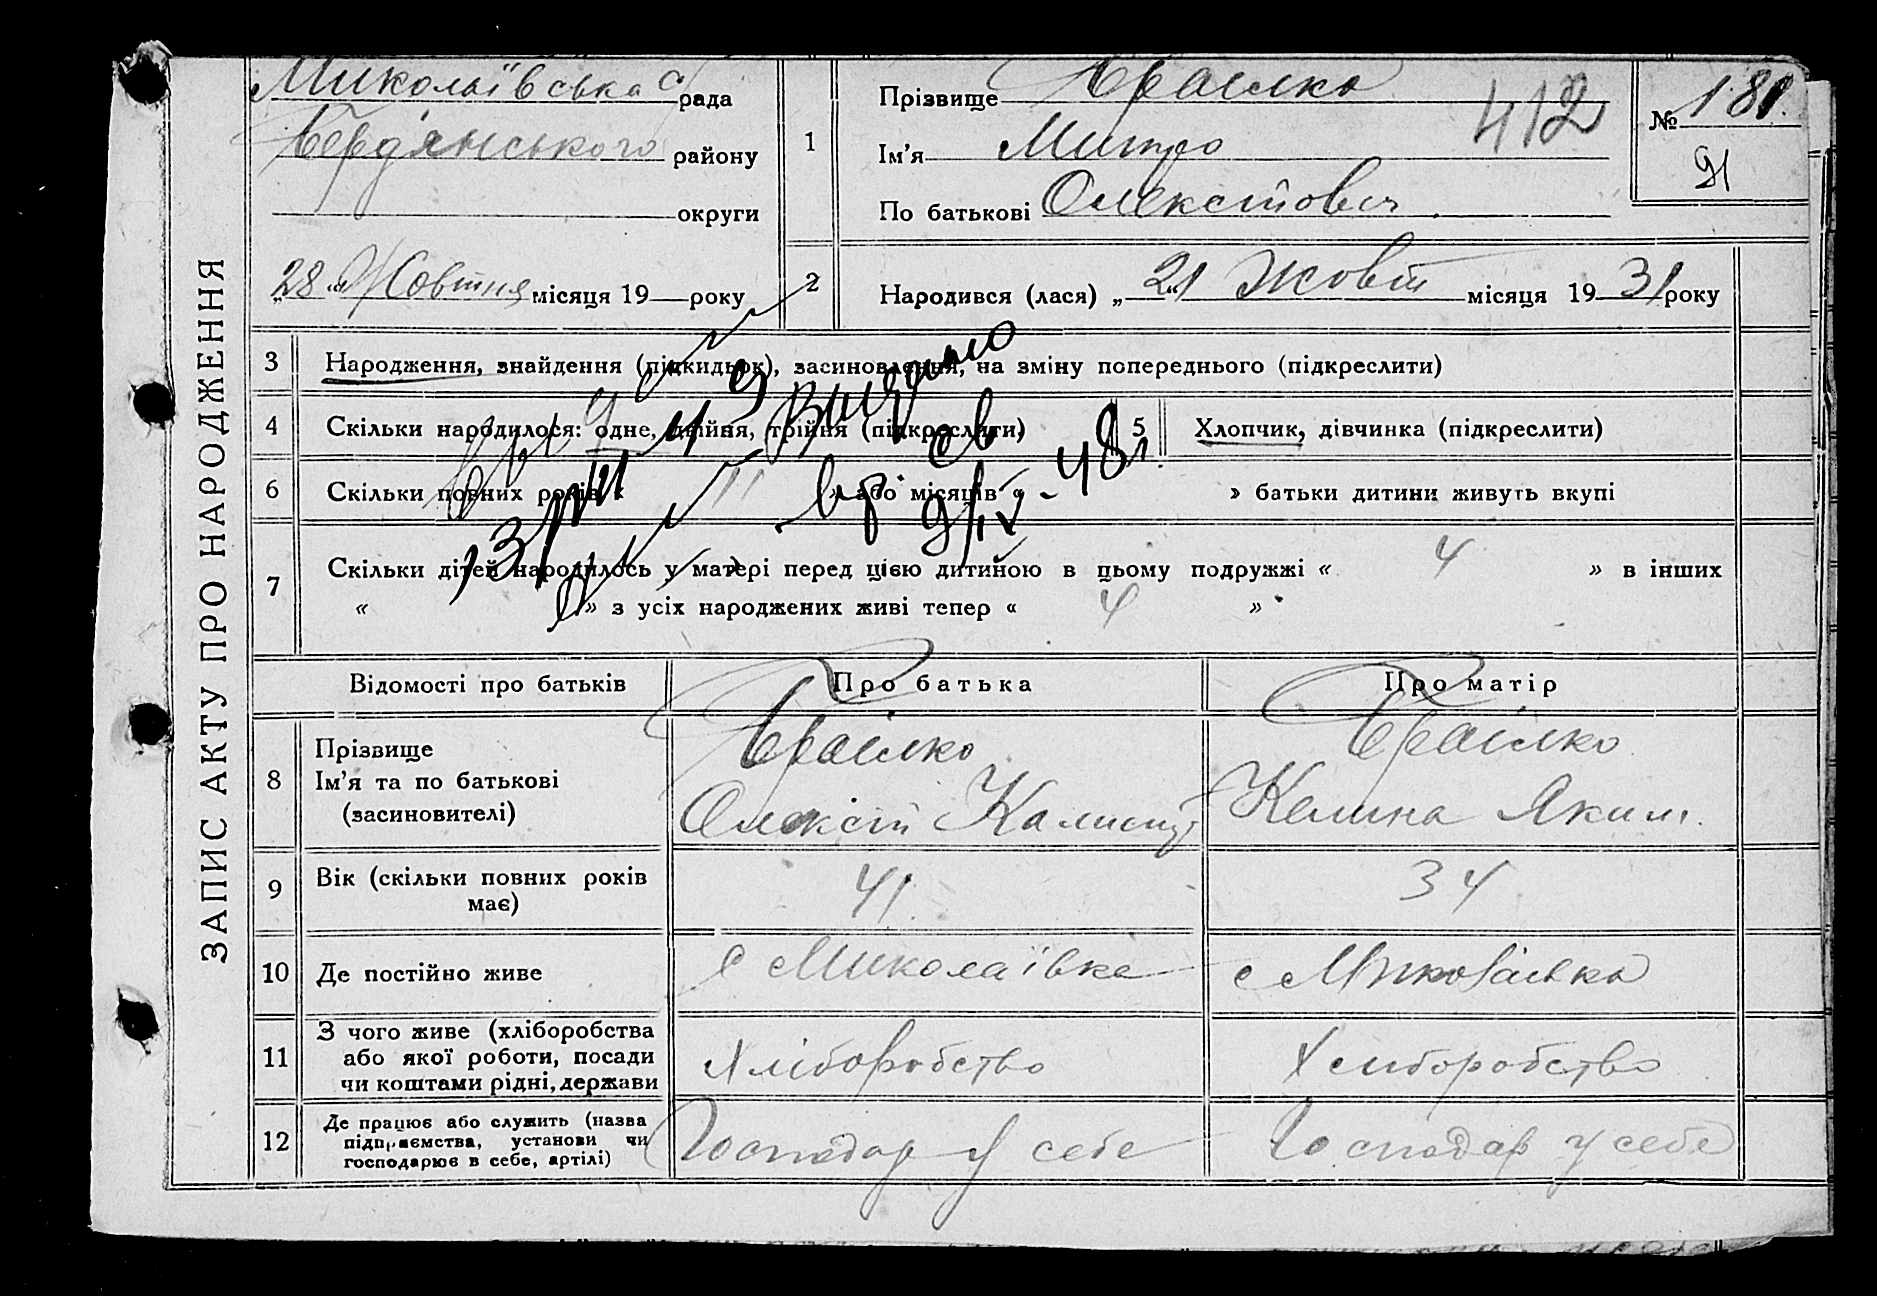 ЗАПИС АКТУ ПРО НАРОДЖЕННЯ
Миколаївська с/рада
Бердянського району
округи
„28" Жовтня місяця 19 року
1
Прізвище Браілко
Ім'я Митро
По батькові Олексійович
412
№ 181.
91
2
Народився (лася) „21" Жовт місяця 1931 року
3 Народження, знайдення (підкидьок), засиновлення, на зміну попереднього (підкреслити)
4 Скільки народилося: одне, двійня, трійня (підкреслити)
5 Хлопчик, дівчинка (підкреслити)
6 Скільки повних років « 11 » або місяців « » батьки дитини живуть вкупі
Выдано
св
бр
9/IV-48
7 Скільки дітей народилось у матері перед цією дитиною в цьому подружжі « 4 » в інших
« » з усіх народжених живі тепер « 4 »
Відомості про батьків Про батька Про матір
8 Прізвище
Ім'я та по батькові
(засиновителі)
Браілко
Олексій Калист
Браілко
Келина Яким.
9 Вік (скільки повних років
має)
41 34
10 Де постійно живе с Миколаївка с Миколаівка
11 З чого живе (хліборобства
або якої роботи, посади
чи коштами рідні, держави
Хліборобство Хліборобство
12 Де працює або служить (назва
підприємства, установи чи
господарює в себе, артілі)
Господар у себе Господар у себе